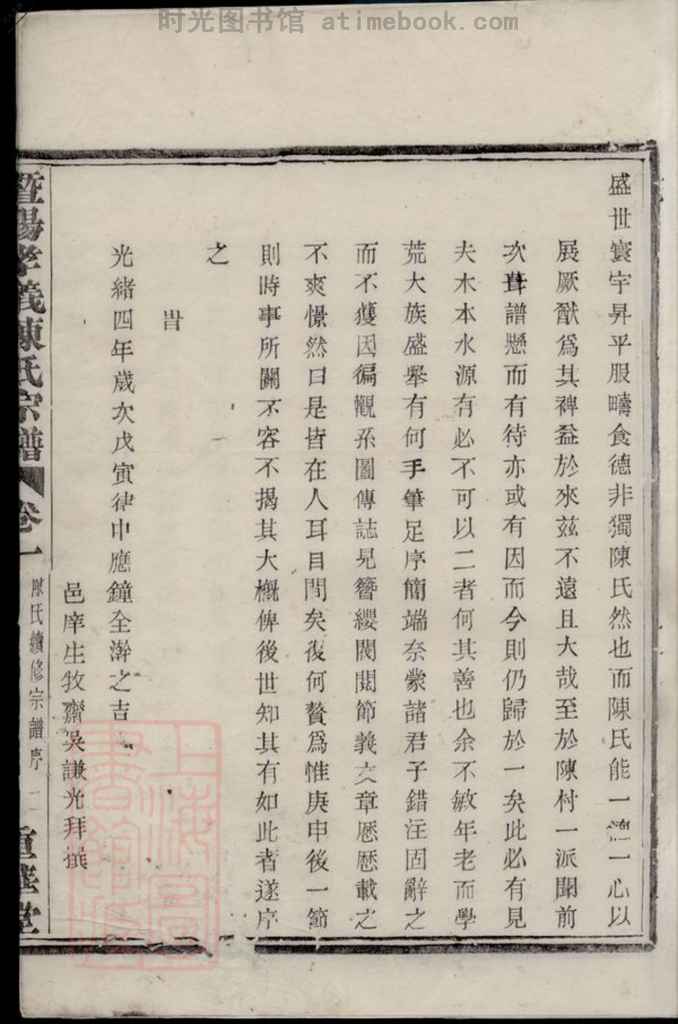 时光图书馆 atimebook.com
盛世寰宇昇平服疇食德非獨陳氏然也而陳氏能一心以
展厥猷為其裨益於來茲不遠且大哉至於陳村一派聞前
次葺譜懸而有待亦或有因而今則仍歸於一矣此必有見
夫木本水源有必不可以二者何其善也余不敏年老而學
荒大族盛舉有何手筆足序簡端奈蒙諸君子錯注固辭之
而不獲因徧觀系圖傳誌見簪纓閥閱節義文章厯厯載之
不爽憬然曰是皆在人耳目間矣復何贅為惟庚申後一節
則時事所關不容不揭其大概俾後世知其有如此者遂序
之
旹
光緒四年歲次戊寅律中應鐘全澣之吉
邑庠生牧齋吳謙光拜撰
暨陽孝義陳氏宗譜 卷一 陳氏續修宗譜序 二
上海圖書館藏